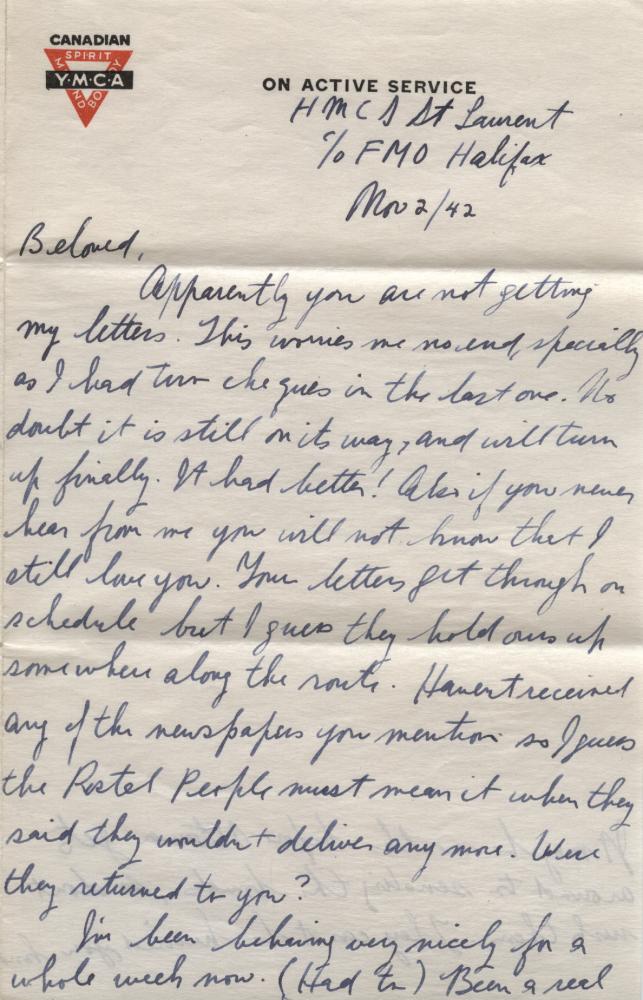 CANADIAN
SPIRIT
Y·M·C·A
MIND BODY
ON ACTIVE SERVICE
HMCS St Laurent
c/o FMO Halifax
Nov 2/42
Beloved,
Apparently you are not getting
my letters. This worries me no end, specially
as I had two cheques in the last one. No
doubt it is still on its way, and will turn
up finally. It had better! Also if you never
hear from me you will not know that I
still love you. Your letters get through on
schedule but I guess they hold ours up
somewhere along the route. Havent received
any of the newspapers you mention so I guess
the Postal People must mean it when they
said they wouldnt deliver any more. Were
they returned to you?
I'm been behaving very nicely for a
whole week now. (Had to) Been a real